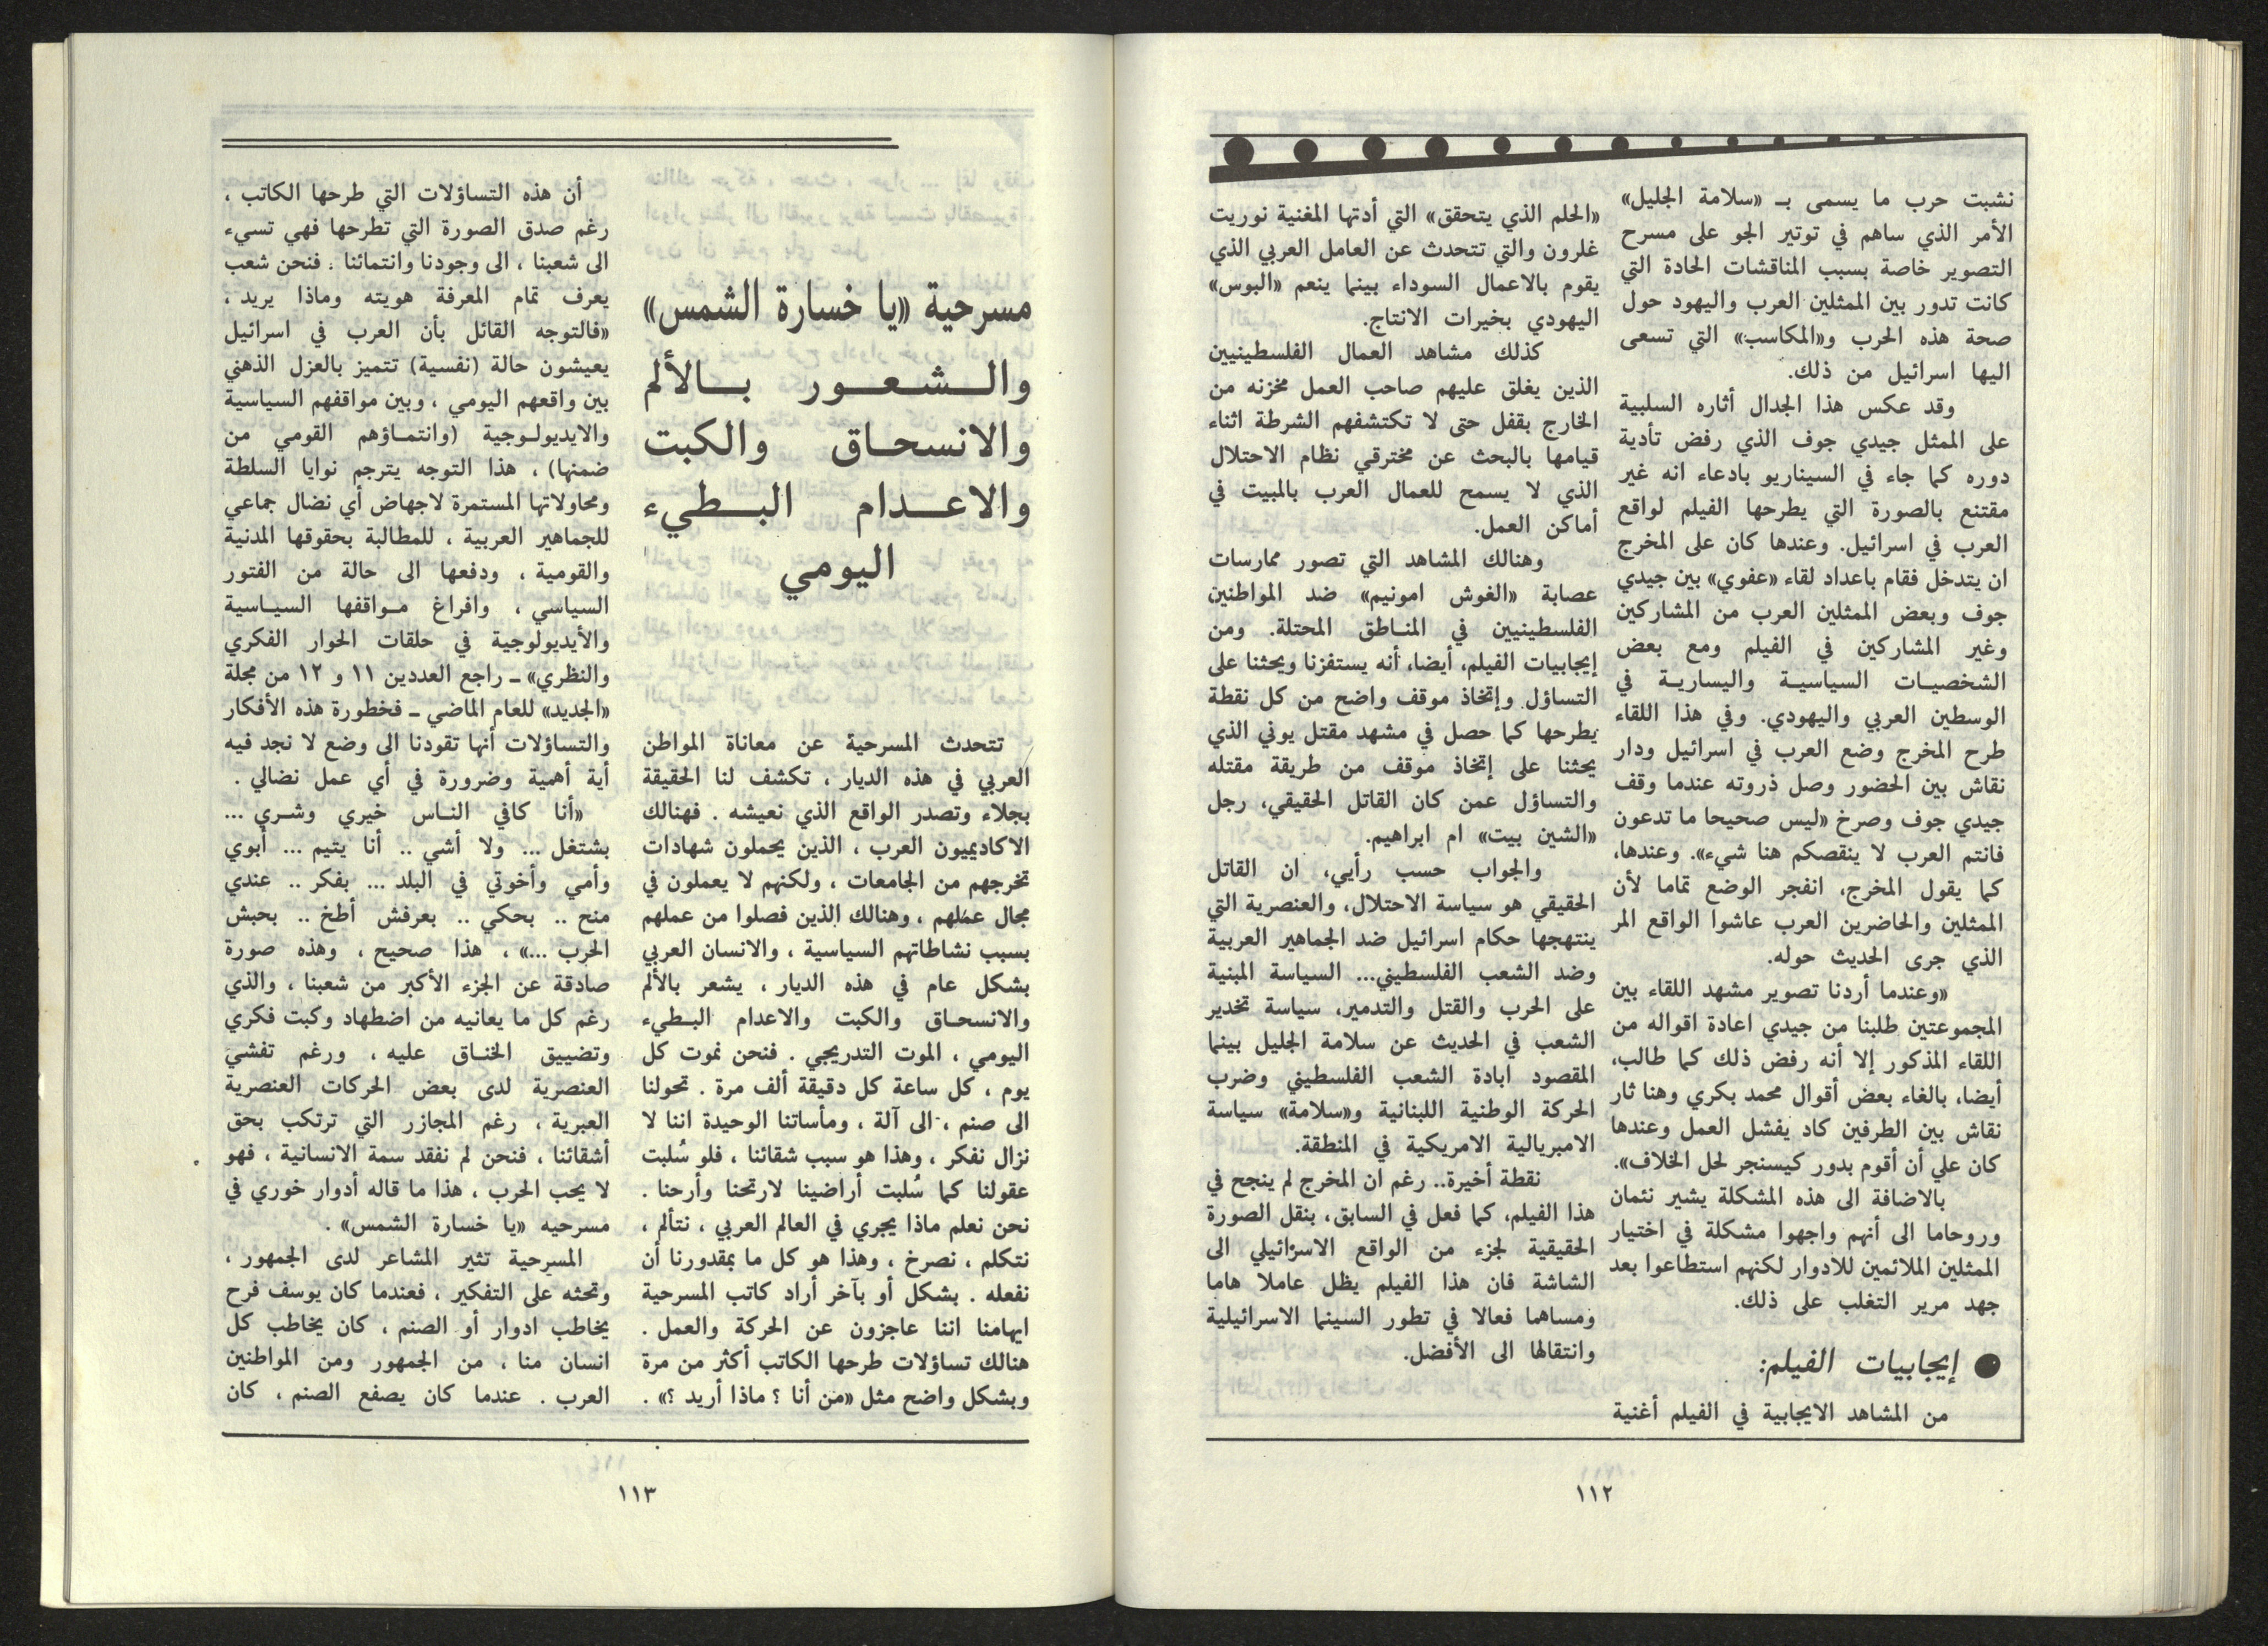 نشبت حرب ما يسمى بـ «سلامة الجليل»
الأمر الذي ساهم في توتير الجو على مسرح
التصوير خاصة بسبب المناقشات الحادة التي
كانت تدور بين الممثلين العرب واليهود حول
صحة هذه الحرب و«المكاسب» التي تسعى
اليها اسرائيل من ذلك.
وقد عكس هذا الجدال أثاره السلبية
على الممثل جيدي جوف الذي رفض تأدية
دوره كما جاء في السيناريو بادعاء انه غير
مقتنع بالصورة التي يطرحها الفيلم لواقع
العرب في اسرائيل. وعندها كان على المخرج
ان يتدخل فقام باعداد لقاء «عفوي» بين جيدي
جوف وبعض الممثلين العرب من المشاركين
وغير المشاركين في الفيلم ومع بعض
الشخصيات السياسية واليسارية في
الوسطين العربي واليهودي. وفي هذا اللقاء
طرح المخرج وضع العرب في اسرائيل ودار
نقاش بين الحضور وصل ذروته عندما وقف
جيدي جوف وصرخ «ليس صحيحا ما تدعون
فانتم العرب لا ينقصكم هنا شيء». وعندها،
كما يقول المخرج، انفجر الوضع تماما لأن
الممثلين والحاضرين العرب عاشوا الواقع المر
الذي جرى الحديث حوله.
«وعندما أردنا تصوير مشهد اللقاء بين
المجموعتين طلبنا من جيدي اعادة اقواله من
اللقاء المذكور إلا أنه رفض ذلك كما طالب،
أيضا، بالغاء بعض أقوال محمد بكري وهنا ثار
نقاش بين الطرفين كاد يفشل العمل وعندها
كان علي أن أقوم بدور كيسنجر لحل الخلاف».
بالاضافة الى هذه المشكلة يشير نئمان
وروحاما الى أنهم واجهوا مشكلة في اختيار
الممثلين الملائمين للأدوار لكنهم استطاعوا بعد
جهد مرير التغلب على ذلك.
● إيجابيات الفيلم:
من المشاهد الايجابية في الفيلم أغنية
«الحلم الذي يتحقق» التي أدتها المغنية نوريت
غلرون والتي تتحدث عن العامل العربي الذي
يقوم بالاعمال السوداء بينما ينعم «البوس»
اليهودي بخيرات الانتاج.
كذلك مشاهد العمال الفلسطينيين
الذين يغلق عليهم صاحب العمل مخزنه من
الخارج بقفل حتى لا تكتشفهم الشرطة اثناء
قيامها بالبحث عن مخترقي نظام الاحتلال
الذي لا يسمح للعمال العرب بالمبيت في
أماكن العمل.
وهنالك المشاهد التي تصور ممارسات
عصابة «الغوش امونيم» ضد المواطنين
الفلسطينيين في المناطق المحتلة. ومن
إيجابيات الفيلم، أيضا، أنه يستفزنا ويحثنا على
التساؤل وإتخاذ موقف واضح من كل نقطة
يطرحها كما حصل في مشهد مقتل يوني الذي
يحثنا على إتخاذ موقف من طريقة مقتله
والتساؤل عمن كان القاتل الحقيقي، رجل
«الشين بيت» ام ابراهيم.
والجواب حسب رأيي، ان القاتل
الحقيقي هو سياسة الاحتلال، والعنصرية التي
ينتهجها حكام اسرائيل ضد الجماهير العربية
وضد الشعب الفلسطيني... السياسة المبنية
على الحرب والقتل والتدمير، سياسة تخدير
الشعب في الحديث عن سلامة الجليل بينما
المقصود ابادة الشعب الفلسطيني وضرب
الحركة الوطنية اللبنانية و«سلامة» سياسة
الامبريالية الامريكية في المنطقة.
نقطة أخيرة.. رغم ان المخرج لم ينجح في
هذا الفيلم، كما فعل في السابق، بنقل الصورة
الحقيقية لجزء من الواقع الاسرائيلي الى
الشاشة فان هذا الفيلم يظل عاملا هاما
ومساهما فعالا في تطور السينما الاسرائيلية
وانتقالها الى الأفضل.
١١٢
مسرحية «يا خسارة الشمس»
والشعور بالألم
والانسحاق والكبت
والاعدام البطيء
اليومي
تتحدث المسرحية عن معاناة المواطن
العربي في هذه الديار ، تكشف لنا الحقيقة
بجلاء وتصدر الواقع الذي نعيشه . فهنالك
الاكاديميون العرب ، الذين يحملون شهادات
تخرجهم من الجامعات ، ولكنهم لا يعملون في
مجال عملهم ، وهنالك الذين فصلوا من عملهم
بسبب نشاطاتهم السياسية ، والانسان العربي
بشكل عام في هذه الديار ، يشعر بالألم
والانسحاق والكبت والاعدام البطيء
اليومي ، الموت التدريجي . فنحن نموت كل
يوم ، كل ساعة كل دقيقة ألف مرة . تحولنا
الى صنم ، الى آلة ، ومأساتنا الوحيدة اننا لا
نزال نفكر ، وهذا هو سبب شقائنا ، فلو سُلبت
عقولنا كما سُلبت أراضينا لارتحنا وأرحنا .
نحن نعلم ماذا يجري في العالم العربي ، نتألم ،
نتكلم ، نصرخ ، وهذا هو كل ما بمقدورنا أن
نفعله . بشكل أو بآخر أراد كاتب المسرحية
ايهامنا اننا عاجزون عن الحركة والعمل .
هنالك تساؤلات طرحها الكاتب أكثر من مرة
وبشكل واضح مثل «من أنا ؟ ماذا أريد ؟» .
أن هذه التساؤلات التي طرحها الكاتب ،
رغم صدق الصورة التي تطرحها فهي تسيء
الى شعبنا ، الى وجودنا وانتمائنا : فنحن شعب
يعرف تمام المعرفة هويته وماذا يريد ،
«فالتوجه القائل بأن العرب في اسرائيل
يعيشون حالة (نفسية) تتميز بالعزل الذهني
بين واقعهم اليومي ، وبين مواقفهم السياسية
والايديولوجية (وانتماؤهم القومي من
ضمنها) ، هذا التوجه يترجم نوايا السلطة
ومحاولاتها المستمرة لاجهاض أي نضال جماعي
للجماهير العربية ، للمطالبة بحقوقها المدنية
والقومية ، ودفعها الى حالة من الفتور
السياسي ، وافراغ مواقفها السياسية
والأيديولوجية في حلقات الحوار الفكري
والنظري» ــ راجع العددين ١١ و ١٢ من مجلة
«الجديد» للعام الماضي ــ فخطورة هذه الأفكار
والتساؤلات أنها تقودنا الى وضع لا نجد فيه
أية أهمية وضرورة في أي عمل نضالي .
«أنا كافي الناس خيري وشري ...
بشتغل ... ولا أشي .. أنا يتيم ... أبوي
وأمي وأخوتي في البلد ... بفكر .. عندي
منح .. بحكي .. بعرفش أطخ .. بحبش
الحرب ...» ، هذا صحيح ، وهذه صورة
صادقة عن الجزء الأكبر من شعبنا ، والذي
رغم كل ما يعانيه من اضطهاد وكبت فكري
وتضييق الخناق عليه ، ورغم تفشي
العنصرية لدى بعض الحركات العنصرية
العبرية ، رغم المجازر التي ترتكب بحق
أشقائنا ، فنحن لم نفقد سمة الانسانية ، فهو
لا يحب الحرب ، هذا ما قاله أدوار خوري في
مسرحيه «يا خسارة الشمس» .
المسرحية تثير المشاعر لدى الجمهور ،
وتحثه على التفكير ، فعندما كان يوسف فرح
يخاطب ادوار أو الصنم ، كان يخاطب كل
انسان منا ، من الجمهور ومن المواطنين
العرب . عندما كان يصفع الصنم ، كان
١١٣